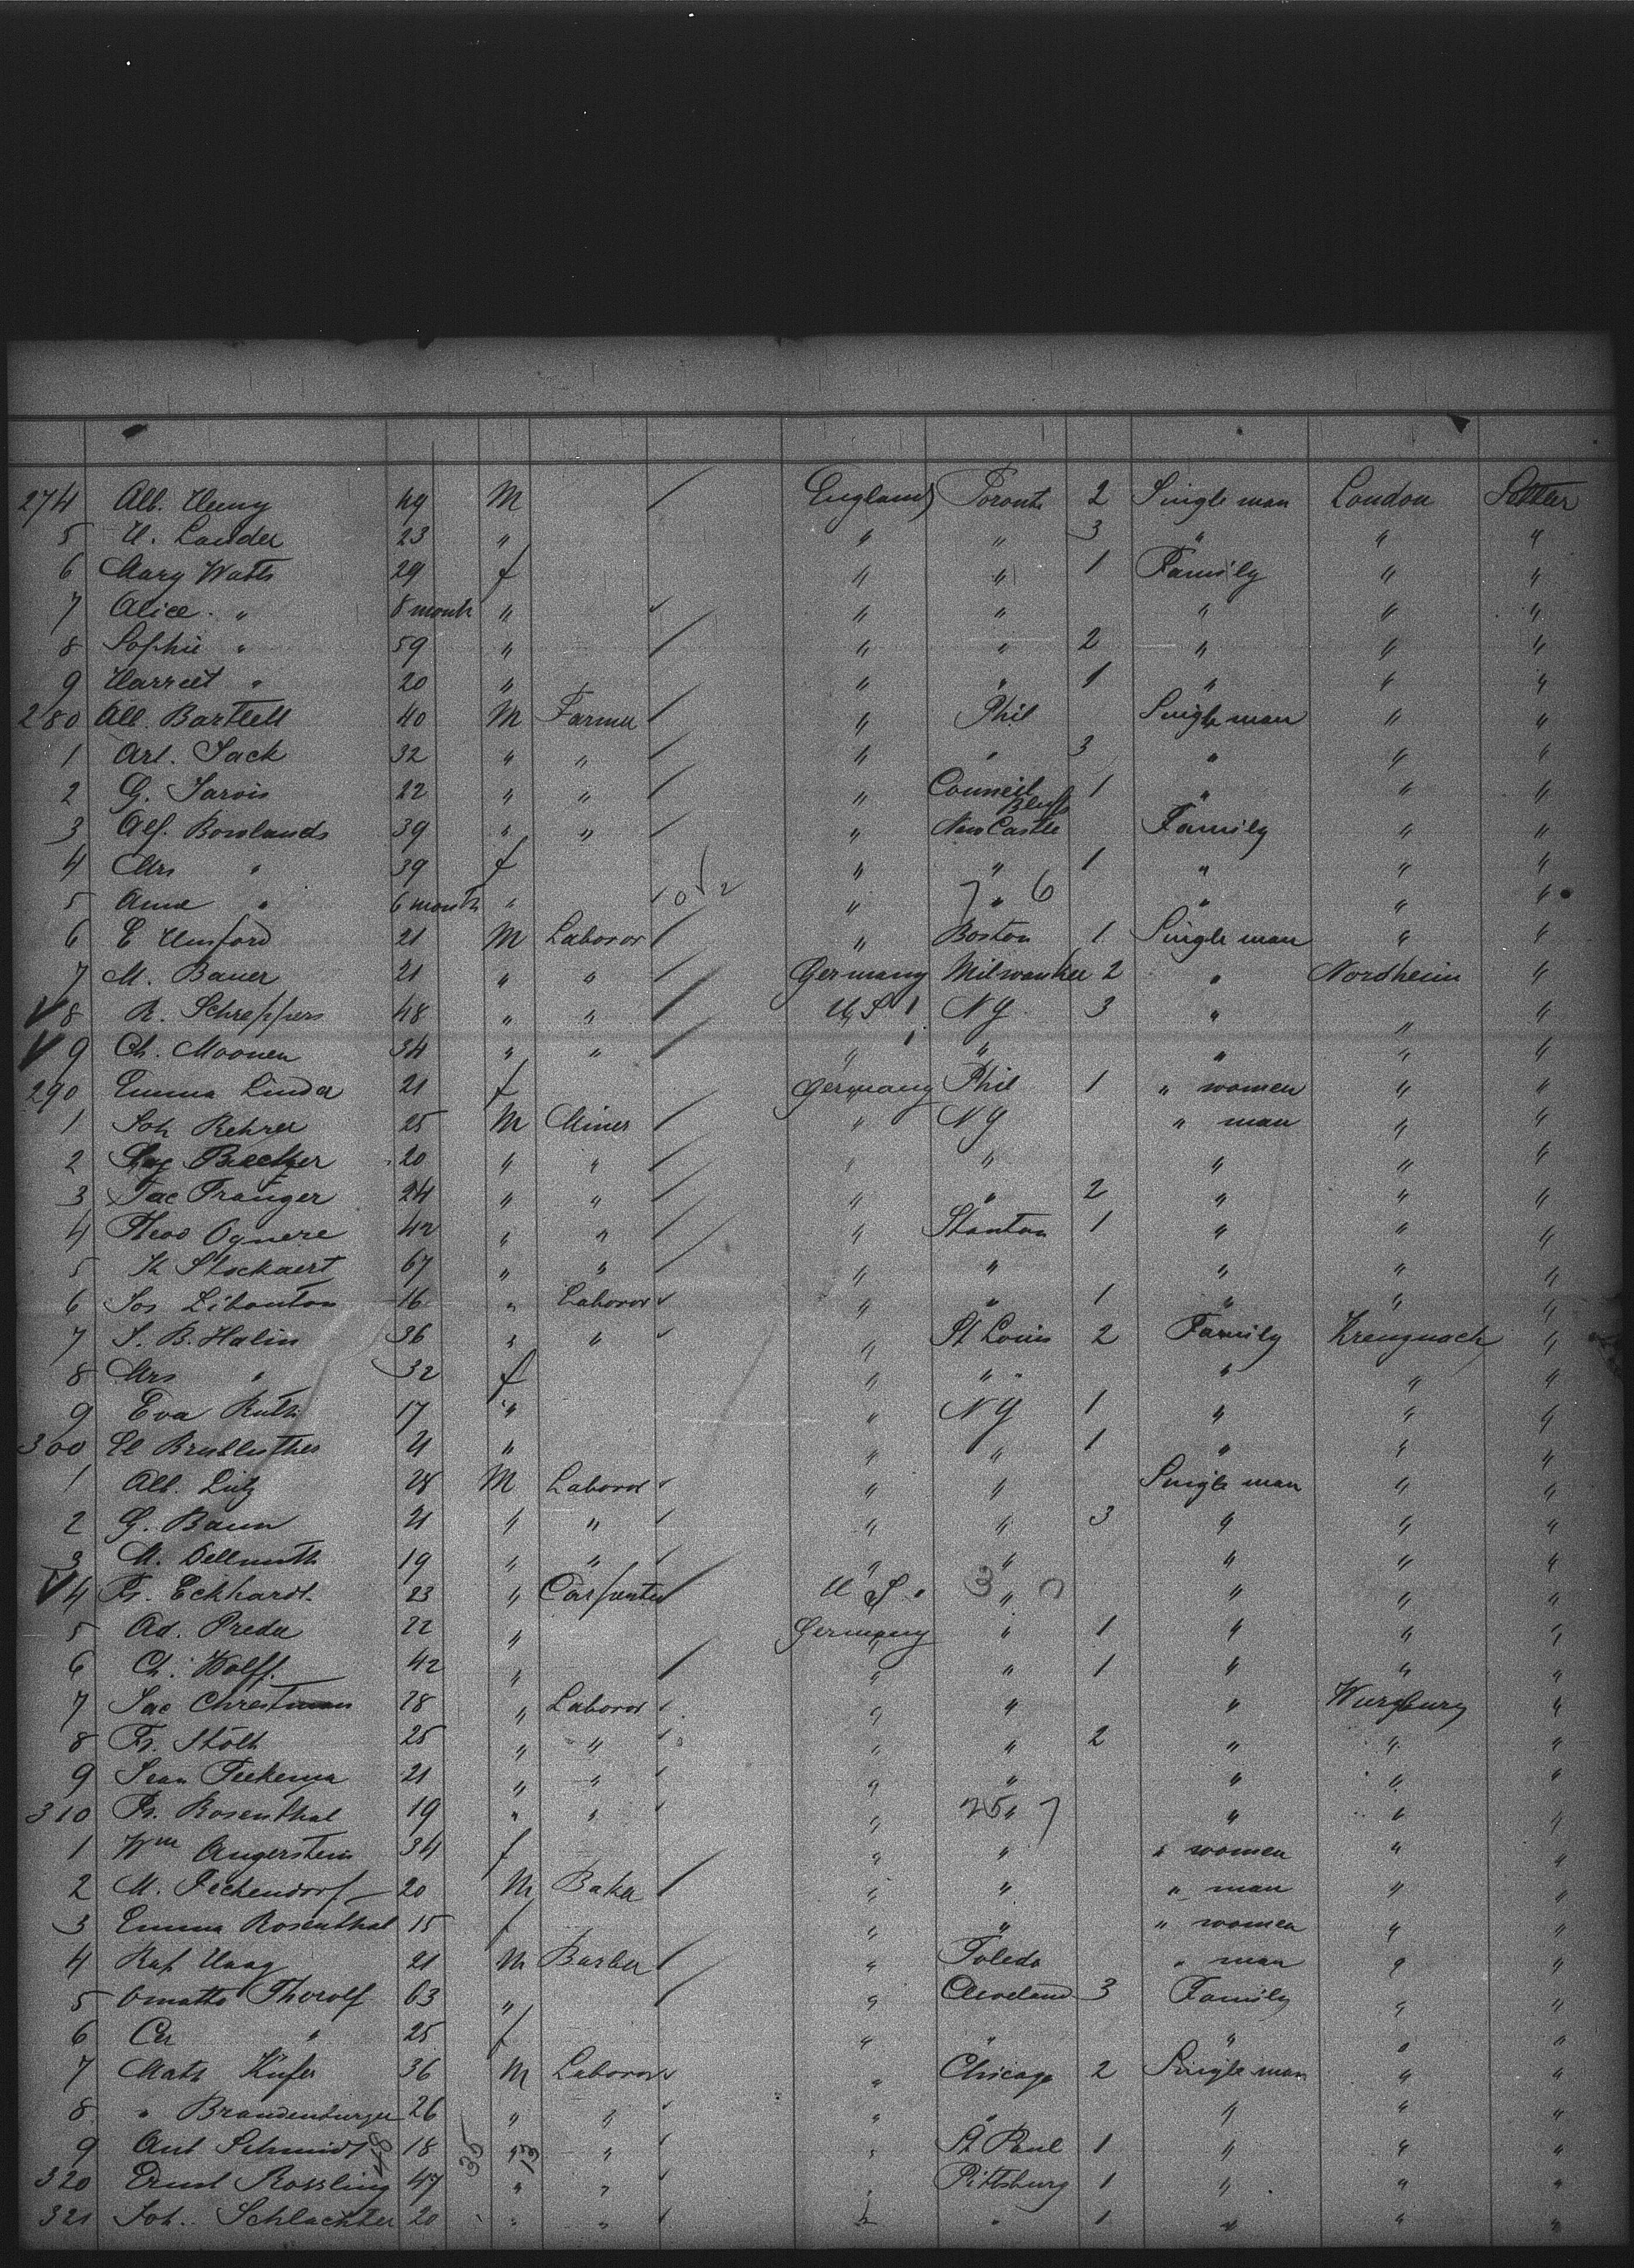 274 Alb. Henny 49 M England Toronto 2 Single man London Settler
5 H. Lander 23 " " " 3 " " "
6 Mary Watts 29 f " " 1 Family " "
7 Alice " 8 month " " " " " "
8 Sophie " 59 " " " 2 " " "
9 Harriet " 20 " " " 1 " " "
280 Alb. Bartlett 40 M Farmer " Phil Single man " "
1 Art. Sack 32 " " " " 3 " " "
2 G. Jarvis 22 " " " Council Bluffs 1 " " "
3 Alf. Bowlands 39 " " " New Castle Family " "
4 Mrs " 39 f " " 1 " " "
5 Anne " 6 month " 0 2 " 7 " 6 " " "
6 E Hunsford 21 M Laboror " Boston 1 Single man " "
7 M. Bauer 21 " " Germany Milwaukee 2 " Nordheim "
8 R. Schreppers 48 " " U.S. NY 3 " " "
9 Ch. Moonen 34 " " " " " " "
290 Emma Linder 21 f Germany Phil 1 " women " "
1 Joh Rehrer 25 M Miner " NY " man " "
2 20 " " " " " " "
3 Jac Franger 24 " " " " 2 " " "
4 Theo Ognere 42 " " " Stanton 1 " " "
5 Stockaert 67 " " " " " " "
6 Jos Libonton 16 " Laboror " " 1 " " "
7 J. B. Halin 36 " " " St Louis 2 Family Kreuznach "
8 Mrs " 32 f " " " " "
9 Eva Ruth 17 " " NY 1 " " "
300 21 " " " 1 " " "
1 Alb. Lutz 28 M Laboror " " Single man " "
2 G. Baun 21 " " " " 3 " " "
3 M. Dellmuth 19 " " " " " " "
4 Fr. Eckhardt 23 " Carpenter U.S. 3 " " " "
5 Ad. Preda 22 " Germany " 1 " " "
6 Ch. Wolff 42 " " " 1 " " "
7 Jac Christman 28 " Laboror " " " Wurzburg "
8 Fr. Stölt 25 " " " " 2 " " "
9 Jean 21 " " " " " " "
310 Fr. Rosenthal 19 " " " 25 " 7 " " "
1 Wm Angerstein 34 f " " " women " "
2 M. Fechendorf 20 M Baker " " " man " "
3 Emma Rosenthal 15 f " " " women " "
4 Haag 21 M Barber " Toledo " man " "
5 Thorolf 63 " " Cleveland 3 Family " "
6 " 25 f " " " " "
7 Math Küfer 36 M Laboror " Chicago 2 Single man " "
8 " Brandenburger 26 " " " " " " "
9 Ant Schmidt 48 18 35 " 13 " " St Paul 1 " " "
320 Ernst Rossling 47 " " " Pittsburg 1 " " "
321 Joh. Schlachter 20 " " " " 1 " " "